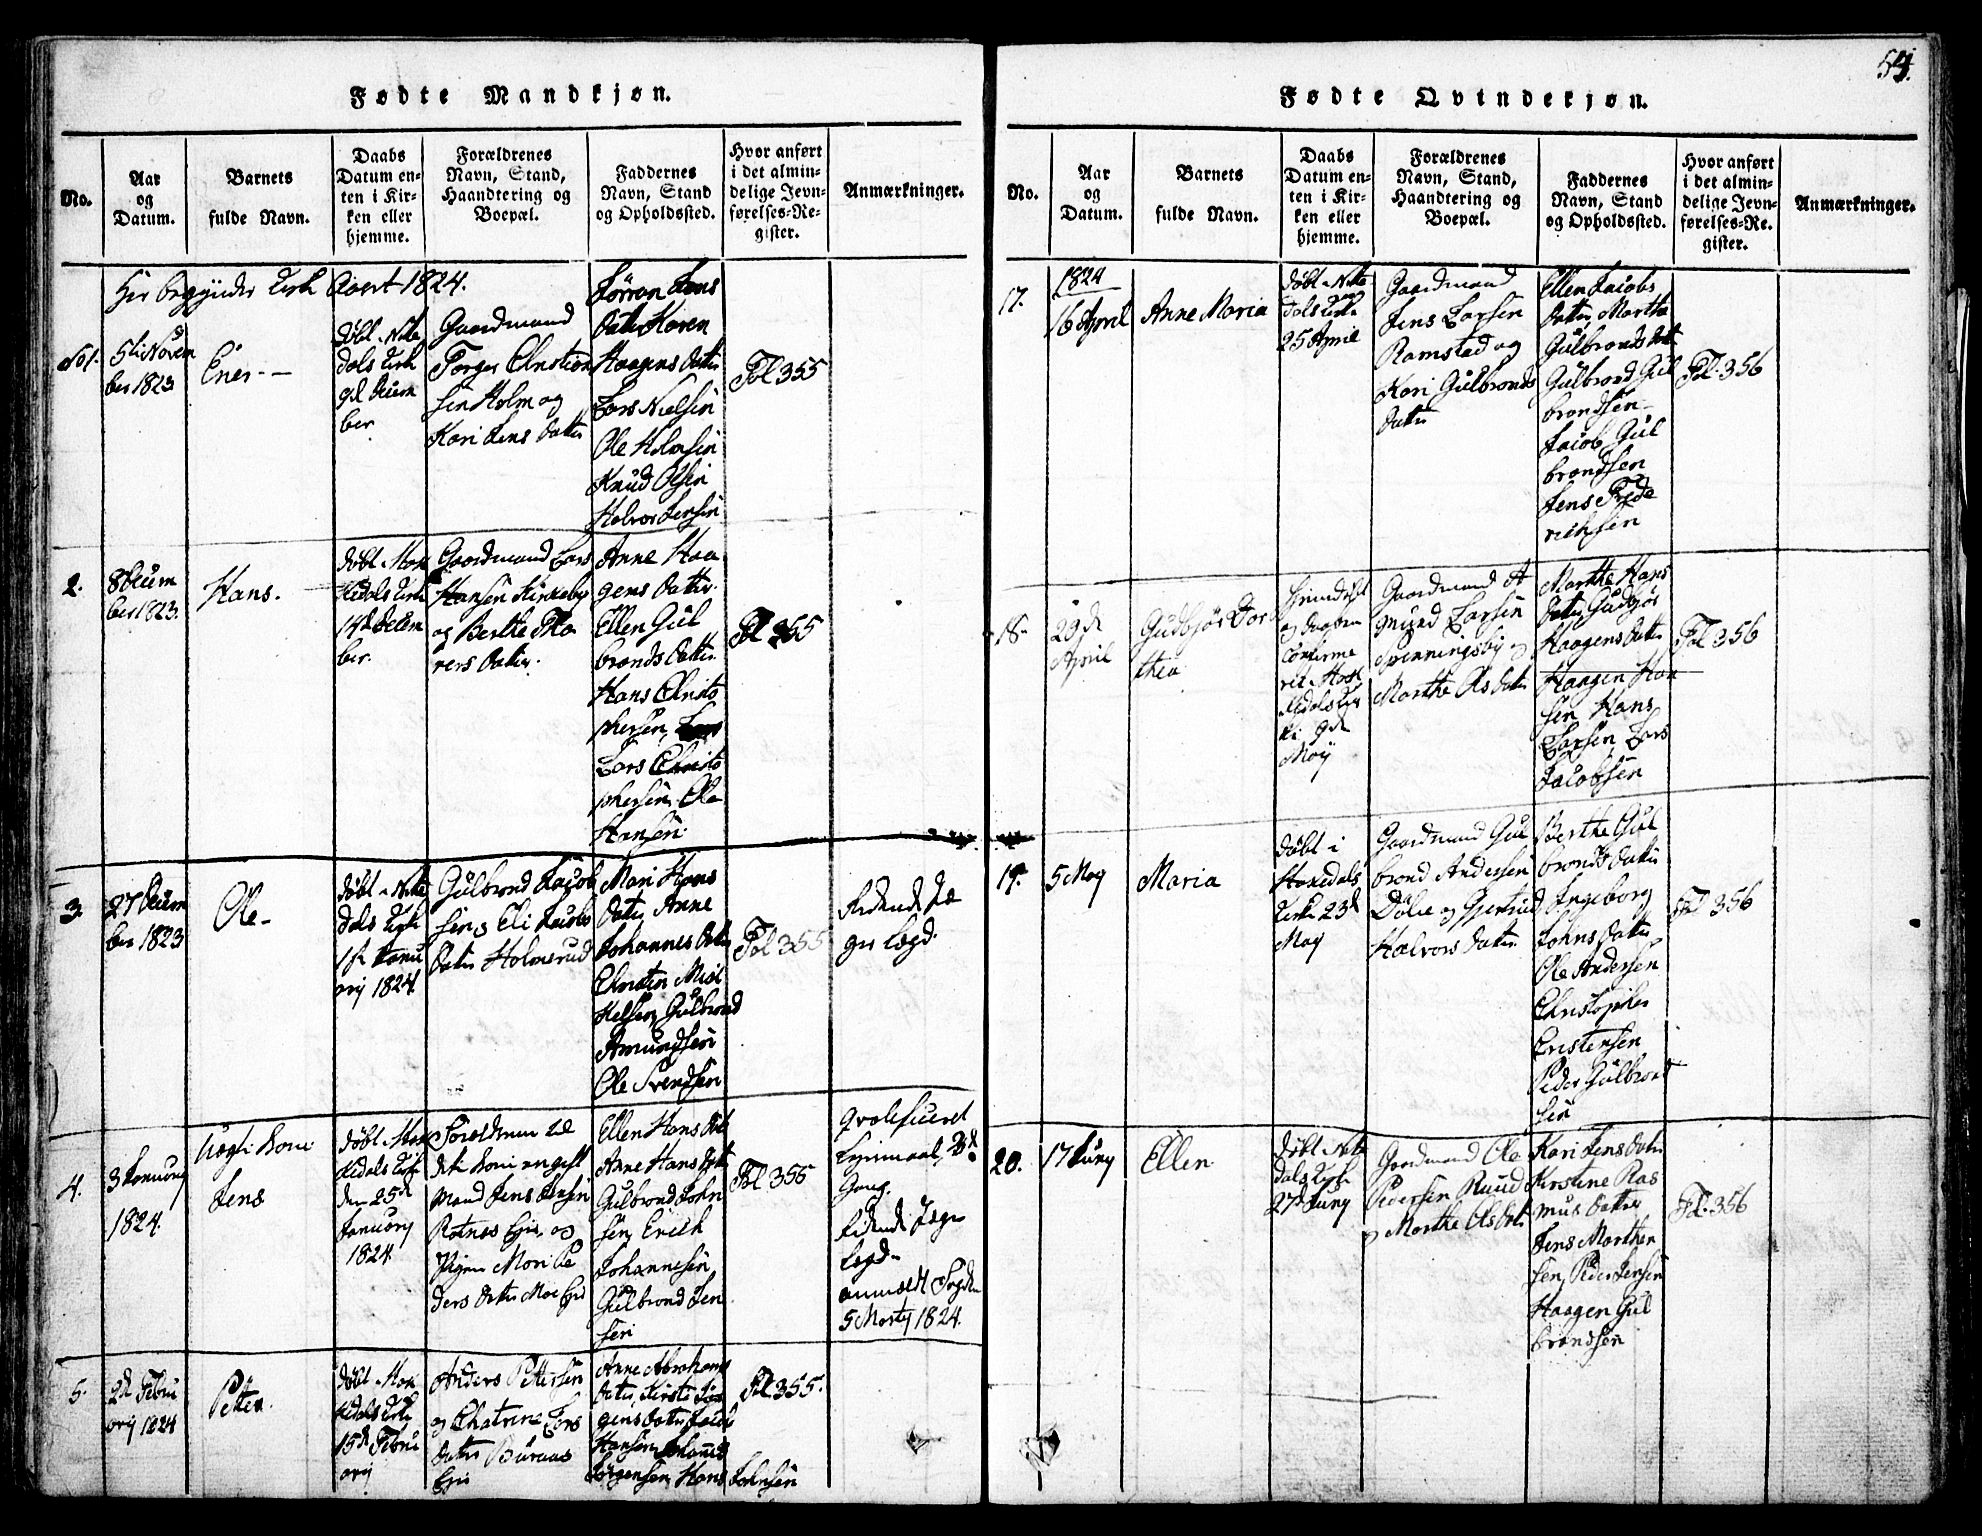 54.
Fødte Mandkjøn.
No.
Aar
og
Datum.
Barnets
fulde Navn.
Daabs
Datum en-
ten i Kir-
ken eller
hjemme.
Forældrenes
Navn, Stand,
Haandtering og
Boepæl.
Faddernes
Navn, Stand
og Opholdssted.
Hvor anført
i det almin-
delige Jevn-
førelses-Re-
gister.
Anmærkninger.
1824.
No 1.
5te Novem
ber 1823
Døbt i Nite
dals Kirke
ber
Gaardmand
Torger Christian
sen Holm og
Kari Jens Datter
Jens
Datter Karen
Haagens Datter
Lars Nielsen
Ole Holmsen
Knud Olsen
Halvor Jensen
Fol 355
2.
8 Decem
ber 1823.
Hans.
Døbt i Hak
kedals Kirke
14de Decem
ber.
Gaardmand Lars
Hansen Kirkeby
og Berthe Tho
rers Datter.
Anne Haa
gens Datter.
Ellen Gul
brands Datter
Hans Christo
phersen,
Lars Christo
phersen, Ole
Hansen.
Fol 355
3.
27 Decem
ber 1823
Ole
Døbt i Nite
dals Kirke
1ste Janu
arij 1824.
Gulbrand Jacob
sen og Eli Jacobs
Datter Holmsrud
Mari Hans
Datter, Anne
Johannes Datter
Christen Mick
kelsen, Gulbrand
Amundsen
Ole Svendsen
Fol 355
Lægd.
4.
3 Januarij
1824.
Uægte Søn
Jens
Døbt i Hak
kedals Kirke
den 25de
Januarij
1824.
Forældrene til
dette Barn
Mand Jens Jensen
Rotnes Eje, og
Pigen Mari Pe
ders Datter Moe Eje
Ellen Hans Dat
Anne Hans Datter
Gulbrand John
sen, Erich
Johannesen,
Gulbrand Jen
sen
Fol 355
Lejermaal,
Gang.
Lægd
anmeldt Fogden
5 Martij 1824.
5.
2de Febru
arij 1824
Petter.
Døbt i Hak
kedals Kirke
15de Febru
arij
Anders Pettersen
og Chatrine Lars
Datter Buraas
Eje
Anne Abrahams
Datter, Kirsti
gens Datter, Jacob
Hansen, Johannes
Jørgensen, Hans Johnsen
Fol 355.
Fødte Qvindekjøn.
No.
Aar
og
Datum.
Barnets
fulde Navn.
Daabs
Datum en-
ten i Kir-
ken eller
hjemme.
Forældrenes
Navn, Stand,
Haandtering og
Boepæl.
Faddernes
Navn, Stand
og Opholdssted.
Hvor anført
i det almin-
delige Jevn-
førelses-Re-
gister.
Anmærkninger.
17.
1824
16 April
Anne Maria
Døbt i Nite
dals Kirke
25 April
Gaardmand
Jens Larsen
Ramstad og
Kari Gulbrands
Datter
Ellen Jacobs
Datter, Marthe
Gulbrands Datt
Gulbrand Gul
brandsen
Jacob Gul
brandsen
Jens Fride
richsen
Fol. 356
18.
29de
April
Gudbjør Dor
thea
Hjemdøbt
og Daaben
confirme
ret i Hak
kedals Kir
ke 9de
Maij
Gaardmand A
mund Larsen
Spenningsby og
Marthe Ols Datter
Marthe Hans
Datter, Gudbjør
Haagens Datter
Haagen Han
sen Hans
Larsen, Lars
Jacobsen
Fol 356
19.
5 Maij
Maria
Døbt i
Hakedals
Kirke 23de
Maij
Gaardmand Gul
brand Andersen
Dølie og Gjertrud
Halvors Datter
Berthe Gul
brands Datter
Ingeborg
Johns Datter
Ole Andersen
Christopher
Cristensen
Peder Gulbrand
sen
Fol 356
20.
17 Junij
Ellen
Døbt i Nite
dals Kirke
27de Junij
Gaardmand Ole
Pedersen Ruud
og Marthe Ols Datt
Kari Jens Datter
Kirstine Ras
mus Datter
Jens Marthin
sen, Peder Jensen
Haagen Gul
brandsen
Fol. 356